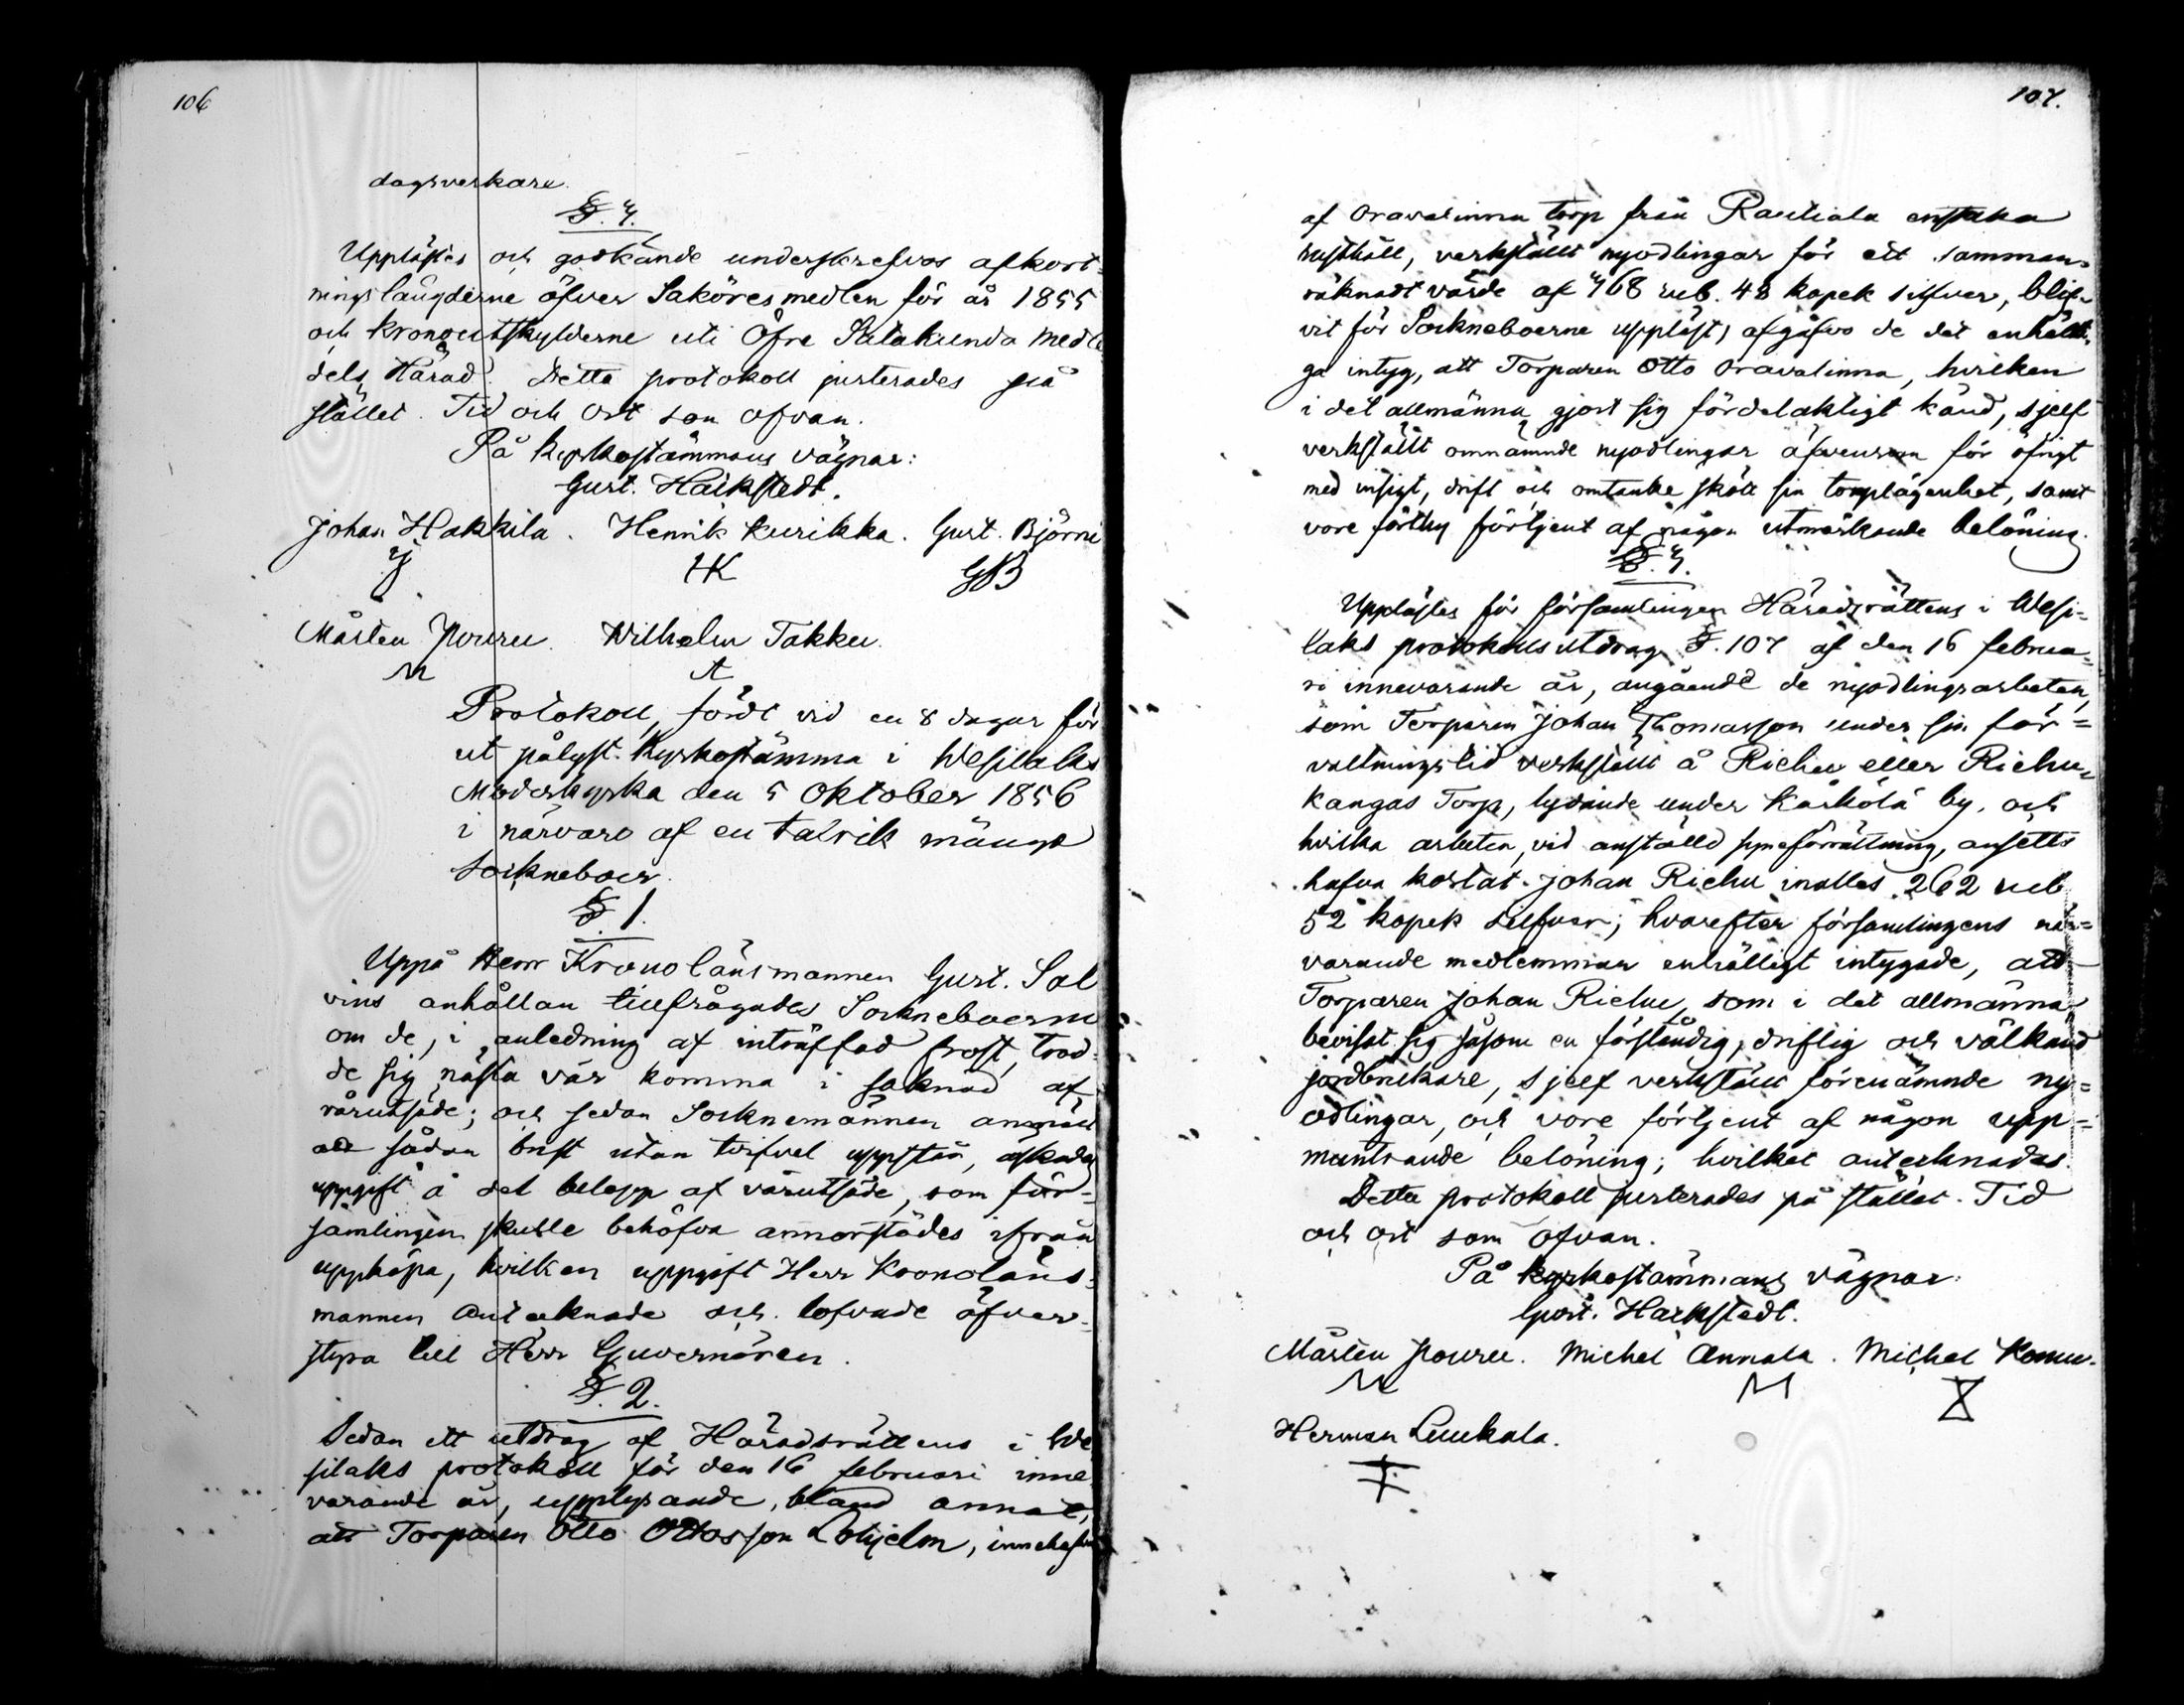 106
dagsverkare.
§. 4.
Upplästes och godkände underskrefvos afkort-
ningslängderne öfver Saköresmedlen för år 1855
och kronoutskylderne uti Öfre Satakunda medle
dels Härad. Detta protokoll justerades på
stället. Tid och Ort som ofvan.
På kyrkostämmans vägnar:
Gust. Haikstedt.
Johan Hakkila. Henrik Kurikka. Gust. Björni
HK GB
Mårten Pouru. Wilhelm Takku.
M A
Protokoll, fördt vid en 8 dagar för
ut pålyst Kyrkostämma i Wesilaks
Moderkyrka den 5 Oktober 1856
i närvaro af en talrik mängd
Sockneboer.
§. 1.
Uppå Herr Kronolänsmannen Gust. Sal
vins anhållan tillfrågades Sockneboerne
om de, i anledning af inträffad frost, trod-
de sig nästa vår komma i saknad af
vårutsäde; och sedan Socknemännen anmält
att sådan brist utan tvifvel uppstår, äskades
uppgift å det belopp af vårutsäde, som för-
samlingen skulle behöfva annorstädes ifrån
uppköpa, hvilken uppgift Herr Kronoläns-
mannen antecknade och lofvade öfver-
styra till Herr Guvernören.
§. 2.
Sedan ett utdrag af Häradsrättens i We
silaks protokoll för den 16 februari inne
varande år, upplysande, bland annat,
att Torparen Otto Ottosson Lohjelm, innehafva
107.
af Oravalinna torp från Rautiala enstaka
rusthåll, verkställt nyodlingar för ett samman-
räknadt värde af 468 rub. 48 kopek silfver, blif-
vit för Sockneboerne uppläst, afgåfvo de det enhälli-
ga intyg, att Torparen Otto Oravalinna, hvilken
i det allmänna gjort sig fördelaktigt känd, sjelf
verkställt omnämnde nyodlingar äfvensom för öfrigt
med insigt, drift och omtanke skött sin torplägenhet, samt
vore förthy förtjent af någon utmärkande belöning.
§. 4.
Upplästes för församlingen Häradsrättens i Wesi-
laks protokollsutdrag §. 107 af den 16 februa-
ri innevarande år, angående de nyodlingsarbeten,
som Torparen Johan Thomasson under sin för=
valtningstid verkställt å Riehu eller Riehu-
kangas Torp, lydande under Kärkölä by, och
hvilka arbeten, vid anställd syneförrättning, ansetts
hafva kostat Johan Riehu inalles 262 rub
52 kopek silfver; hvarefter församlingens när=
varande medlemmar enhälligt intygade, att
Torparen Johan Riehu, som i det allmänna
bevisat sig såsom en förståndig, driftig och välkänd
jordbrukare, sjelf verkställt förenämnde ny=
odlingar, och vore förtjent af någon upp=
muntrande belöning; hvilket antecknades.
Detta protokoll justerades på stället. Tid
och ort som ofvan.
På kyrkostämmans vägnar:
Gust. Haikstedt.
Mårten Pouru. Michel Annala. Michel Konnu.
M M
Herman Luukala.